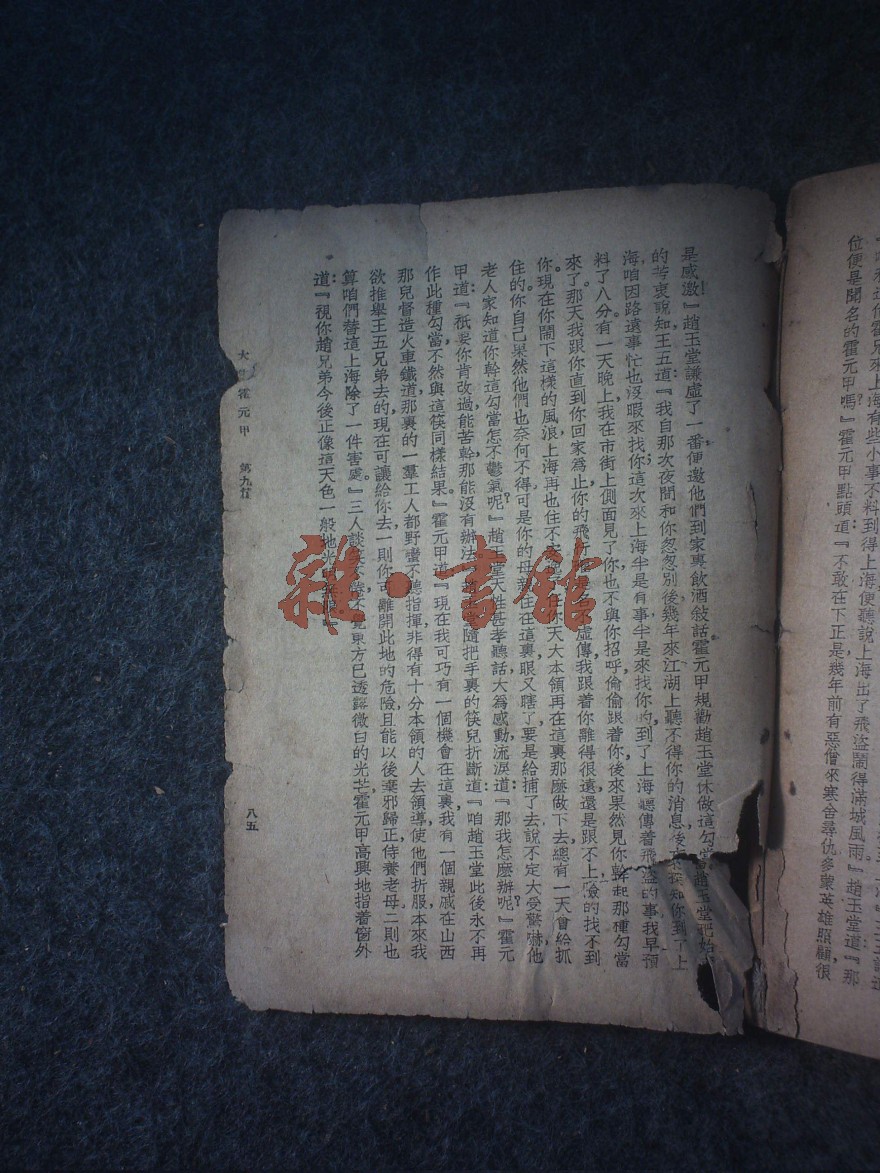 位便是聞名的霍元甲嗎』霍元甲點頭道『不敢在下正是幾年前有惡僧來寒舍尋仇多蒙英雄照顧很
是感激!』趙玉堂謙虛了一番便邀他們到家裏飲酒敍話霍元甲規勸趙玉堂休做這勾當趙玉堂把始
的苦衷說知王五道『我自那次夜間和你怱怱別後幾年來江湖上聽不得你的消息後探知你到了上
海咱因路遠事忙也沒暇來找你這次來上海半是有事半是來找你的到了上海聽傳着飛盜的事我早預
料了八分有一天晚上我在市街上側面見了你也不與你招呼偷偷跟着你後來果然見你幹起那種勾當
來了那天我跟你直到你回家為止你的飛不虛傳我跟着你離得很遠還是跟不上險的找不到
你現在你鬧下這樣的風浪上海再也住不你天大本領再在這裏那麼做下去總有一天會給抓
住的你自己果然他們也奈何不得可是你的母親住在這裏眼又瞎了要是給捕了去說不定大受驚嚇他
老人家知道你幹這勾當怎不鬱氣呢』趙玉堂天性甚孝聽話大為感動流淚道『那我怎麼辦呢?』霍元
甲道『祇要你肯改過能苦幹那能沒有辦法』趙玉堂隨把手裏的筷兒折斷道『咱趙玉堂此後永不再
作此種勾當不然與這筷同樣結果』霍元甲道『現在我可巧有一個機會在這裏我有一個親戚在山西
那兒督造火車鐵道那裏的一羣工人都野蠻不聽指揮非得有十分本領的人去領導使他們折服本來我
欲推舉王五兄弟去的現在可讓給你去一則你可離開此地的危險且能以後棄邪歸正侍養老母二則也
算咱們替這上海除了一件害處』三人談東方已透露微白的光芒霍元甲高興地指着窗外
道『視你趙兄弟今後正像這天色一般地光
霍元甲 第九
八五
雜·書館